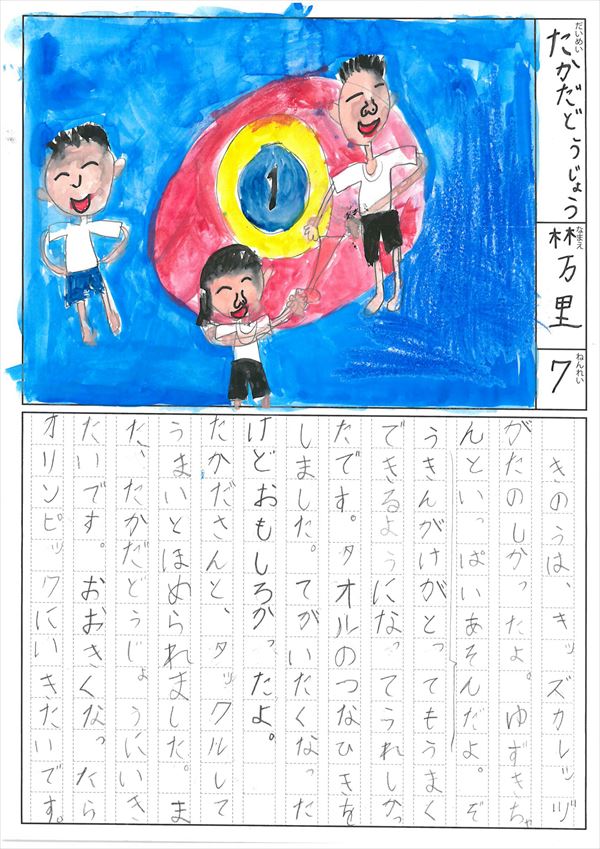 だいめい
たかだどうじょう
なまえ
林万里
ねんれい
7
1
きのうは、キッズカレッヂ
がたのしかったよ。ゆずきちゃ
んといっぱいあそんだよ。ぞ
うきんがけがとってもうまく
できるようになってうれしかっ
たです。タオルのつなひきを
しました。てがいたくなった
けどおもしろかったよ。
たかださんと、タックルして
うまいとほめられました。ま
た、たかだどうじょうにいき
たいです。おおきくなったら
オリンピックにいきたいです。